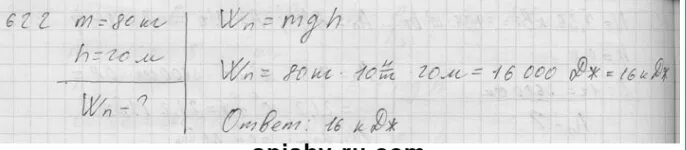 622 m = 80 кг
h = 20 м
Wп - ?
Wп = mgh
Wп = 80 кг · 10 н/кг 20 м = 16 000 Дж = 16 кДж
Ответ: 16 кДж